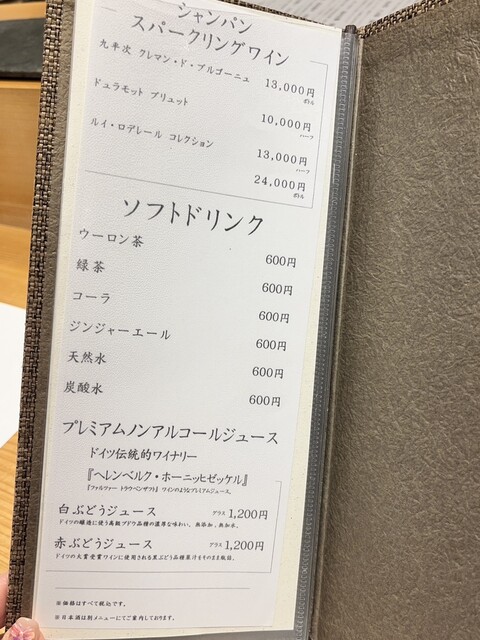 シャンパン
スパークリングワイン
九平次 クレマン・ド・ブルゴーニュ
13,000円
ボトル
デュラモット ブリュット
10,000円
ハーフ
ルイ・ロデレール コレクション
13,000円
ハーフ
24,000円
ボトル
ソフトドリンク
ウーロン茶 600円
緑茶 600円
コーラ 600円
ジンジャーエール 600円
天然水 600円
炭酸水 600円
プレミアムノンアルコールジュース
ドイツ伝統的ワイナリー
『ヘレンベルク・ホーニッヒゼッケル』
『ファルファー トラウベンザフト』 ワインのようなプレミアムジュース。
白ぶどうジュース グラス 1,200円
ドイツの醸造に使う高級ブドウ品種の濃厚な味わい。無添加、無加水。
赤ぶどうジュース グラス 1,200円
ドイツの大賞受賞ワインに使用される黒ぶどう品種果汁をそのまま瓶詰。
※価格はすべて税込です。
※日本酒は別メニューにてご案内しております。